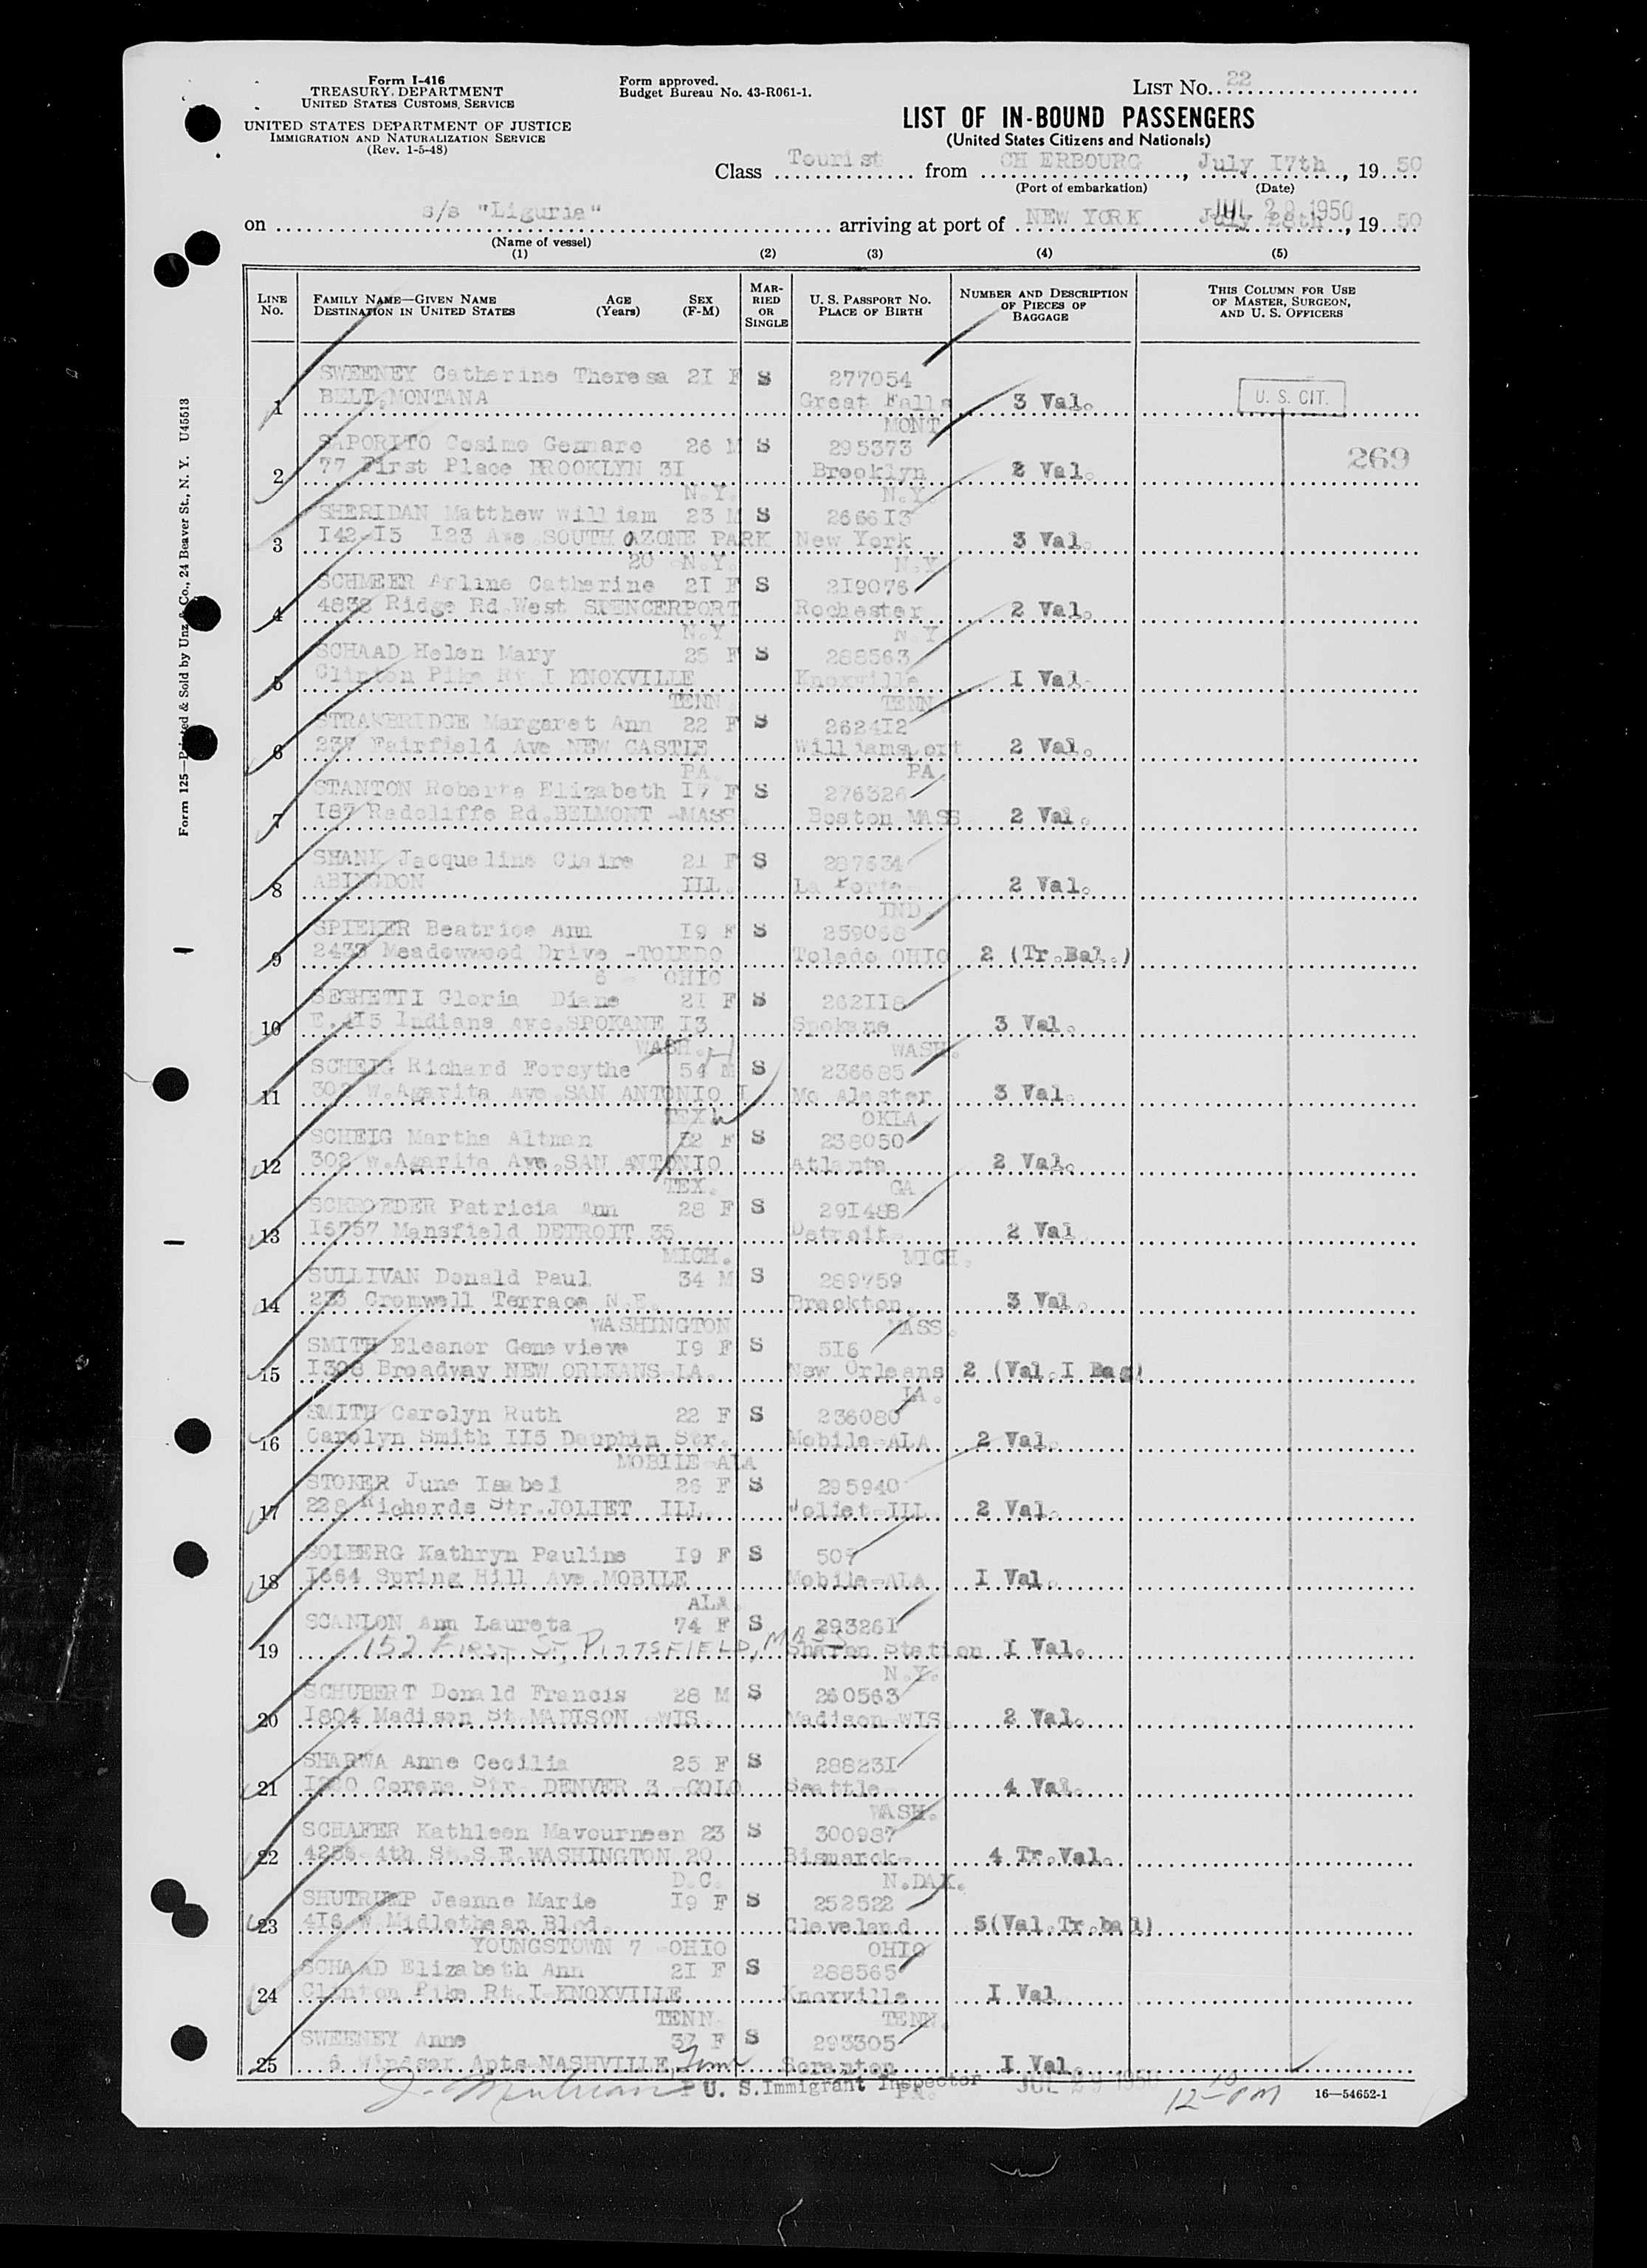 Form I-416
TREASURY DEPARTMENT
UNITED STATES CUSTOMS SERVICE
UNITED STATES DEPARTMENT OF JUSTICE
IMMIGRATION AND NATURALIZATION SERVICE
(Rev. 1-5-48)
Form approved.
Budget Bureau No. 43-R061-1.
LIST No. 22
LIST OF IN-BOUND PASSENGERS
(United States Citizens and Nationals)
Class Tourist from CHERBOURG, July I7th, 1950
(Port of embarkation) (Date)
on s/s "Liguria" arriving at port of NEW YORK July 28th, 1950
JUL 29 1950
(Name of vessel)
(1) (2) (3) (4) (5)
LINE No. FAMILY NAME—GIVEN NAME DESTINATION IN UNITED STATES AGE (Years) SEX (F-M) MARRIED OR SINGLE U. S. PASSPORT No. PLACE OF BIRTH NUMBER AND DESCRIPTION OF PIECES OF BAGGAGE THIS COLUMN FOR USE OF MASTER, SURGEON, AND U. S. OFFICERS
SWEENEY Catherine Theresa 2I F S 277054
1 BELT.MONTANA Great Falls 3 Val. U. S. CIT.
MONT
SAPORITO Cosimo Gennaro 26 M S 295373 269
2 77 First Place BROOKLYN 3I Brooklyn 2 Val.
N.Y. N.Y.
SHERIDAN Matthew William 23 M S 2666I3
3 I42-I5 I23 Ave.SOUTH OZONE PARK New York 3 Val.
20 N.Y. N.Y
SCHMEER Arline Catharine 2I F S 2I9076
4 4838 Ridge Rd.West SPENCERPORT Rochester 2 Val.
N.Y N.Y
SCHAAD Helen Mary 25 F S 288563
5 Clinton Pike Rt.I KNOXVILLE Knoxville I Val.
TENN. TENN.
STRAWBRIDGE Margaret Ann 22 F S 2624I2
6 237 Fairfield Ave.NEW CASTLE Williamsport 2 Val.
PA. PA
STANTON Roberta Elizabeth I7 F S 276326
7 I87 Radcliffe Rd.BELMONT -MASS. Boston MASS 2 Val.
SHANK Jacqueline Claire 21 F S 287634
8 ABINGDON ILL. La Porte 2 Val.
IND.
SPIEKER Beatrice Ann I9 F S 259068
9 2433 Meadowwood Drive -TOLEDO Toledo OHIO 2 (Tr.Bal.)
6 - OHIO
SEGHETTI Gloria Diane 2I F S 262II8
10 E.4I5 Indiana Ave.SPOKANE I3 Spokane 3 Val.
WASH. H WASH.
SCHEIG Richard Forsythe 54 M S 236685
11 302 W.Agarita Ave.SAN ANTONIO I Mc Alester 3 Val.
TEX W OKLA.
SCHEIG Martha Altman 52 F S 238050
12 302 W.Agarita Ave.SAN ANTONIO Atlanta 2 Val.
TEX. GA
SCHROEDER Patricia Ann 28 F S 29I488
13 I6757 Mansfield DETROIT 35 Detroit- 2 Val
MICH. MICH.
SULLIVAN Donald Paul 34 M S 289759
14 233 Cromwell Terrace N.E. Brockton 3 Val.
WASHINGTON MASS.
SMITH Eleanor Genevieve I9 F S 5I6
15 I308 Broadway NEW ORLEANS-LA. New Orleans 2 (Val.I Bag)
LA.
SMITH Carolyn Ruth 22 F S 236080
16 Carolyn Smith II5 Dauphin Str. Mobile-ALA 2 Val.
MOBILE-ALA
STOKER June Isabel 26 F S 295940
17 228 Richards Str.JOLIET ILL. Joliet-ILL 2 Val.
SOLBERG Kathryn Pauline I9 F S 507
18 I664 Spring Hill Ave.MOBILE Mobile-ALA I Val.
ALA.
SCANLON Ann Laureta 74 F S 29326I
19 152 FIRST ST, PITTSFIELD, MASS Sharon Station I Val.
N.Y.
SCHUBERT Donald Francis 28 M S 260563
20 I804 Madison St MADISON -WIS. Madison-WIS 2 Val.
SHARWA Anne Cecilia 25 F S 28823I
21 I220 Corona Str. DENVER 3 -COLO Seattle- 4 Val.
WASH.
SCHAFER Kathleen Mavourneen 23 S 300987
22 4236-4th St.S.E.WASHINGTON 20 Bismarck- 4 Tr.Val.
D.C. N.DAK.
SHUTRUMP Jeanne Marie I9 F S 252522
23 4I6 W.Midlothean Blvd. Cleveland 5(Val.Tr.bal)
YOUNGSTOWN 7 -OHIO OHIO
SCHAAD Elizabeth Ann 2I F S 288565
24 Clinton Pike Rt.I-KNOXVILLE Knoxville I Val
TENN. TENN.
SWEENEY Anne 37 F S 293305
25 6 Windsor Apts-NASHVILLE Tenn Scranton I Val
U. S. Immigrant Inspector PA. JUL 29 1950 12 10 PM 16—54652-1
Form 125—Printed & Sold by Unz & Co., 24 Beaver St., N. Y. U45513